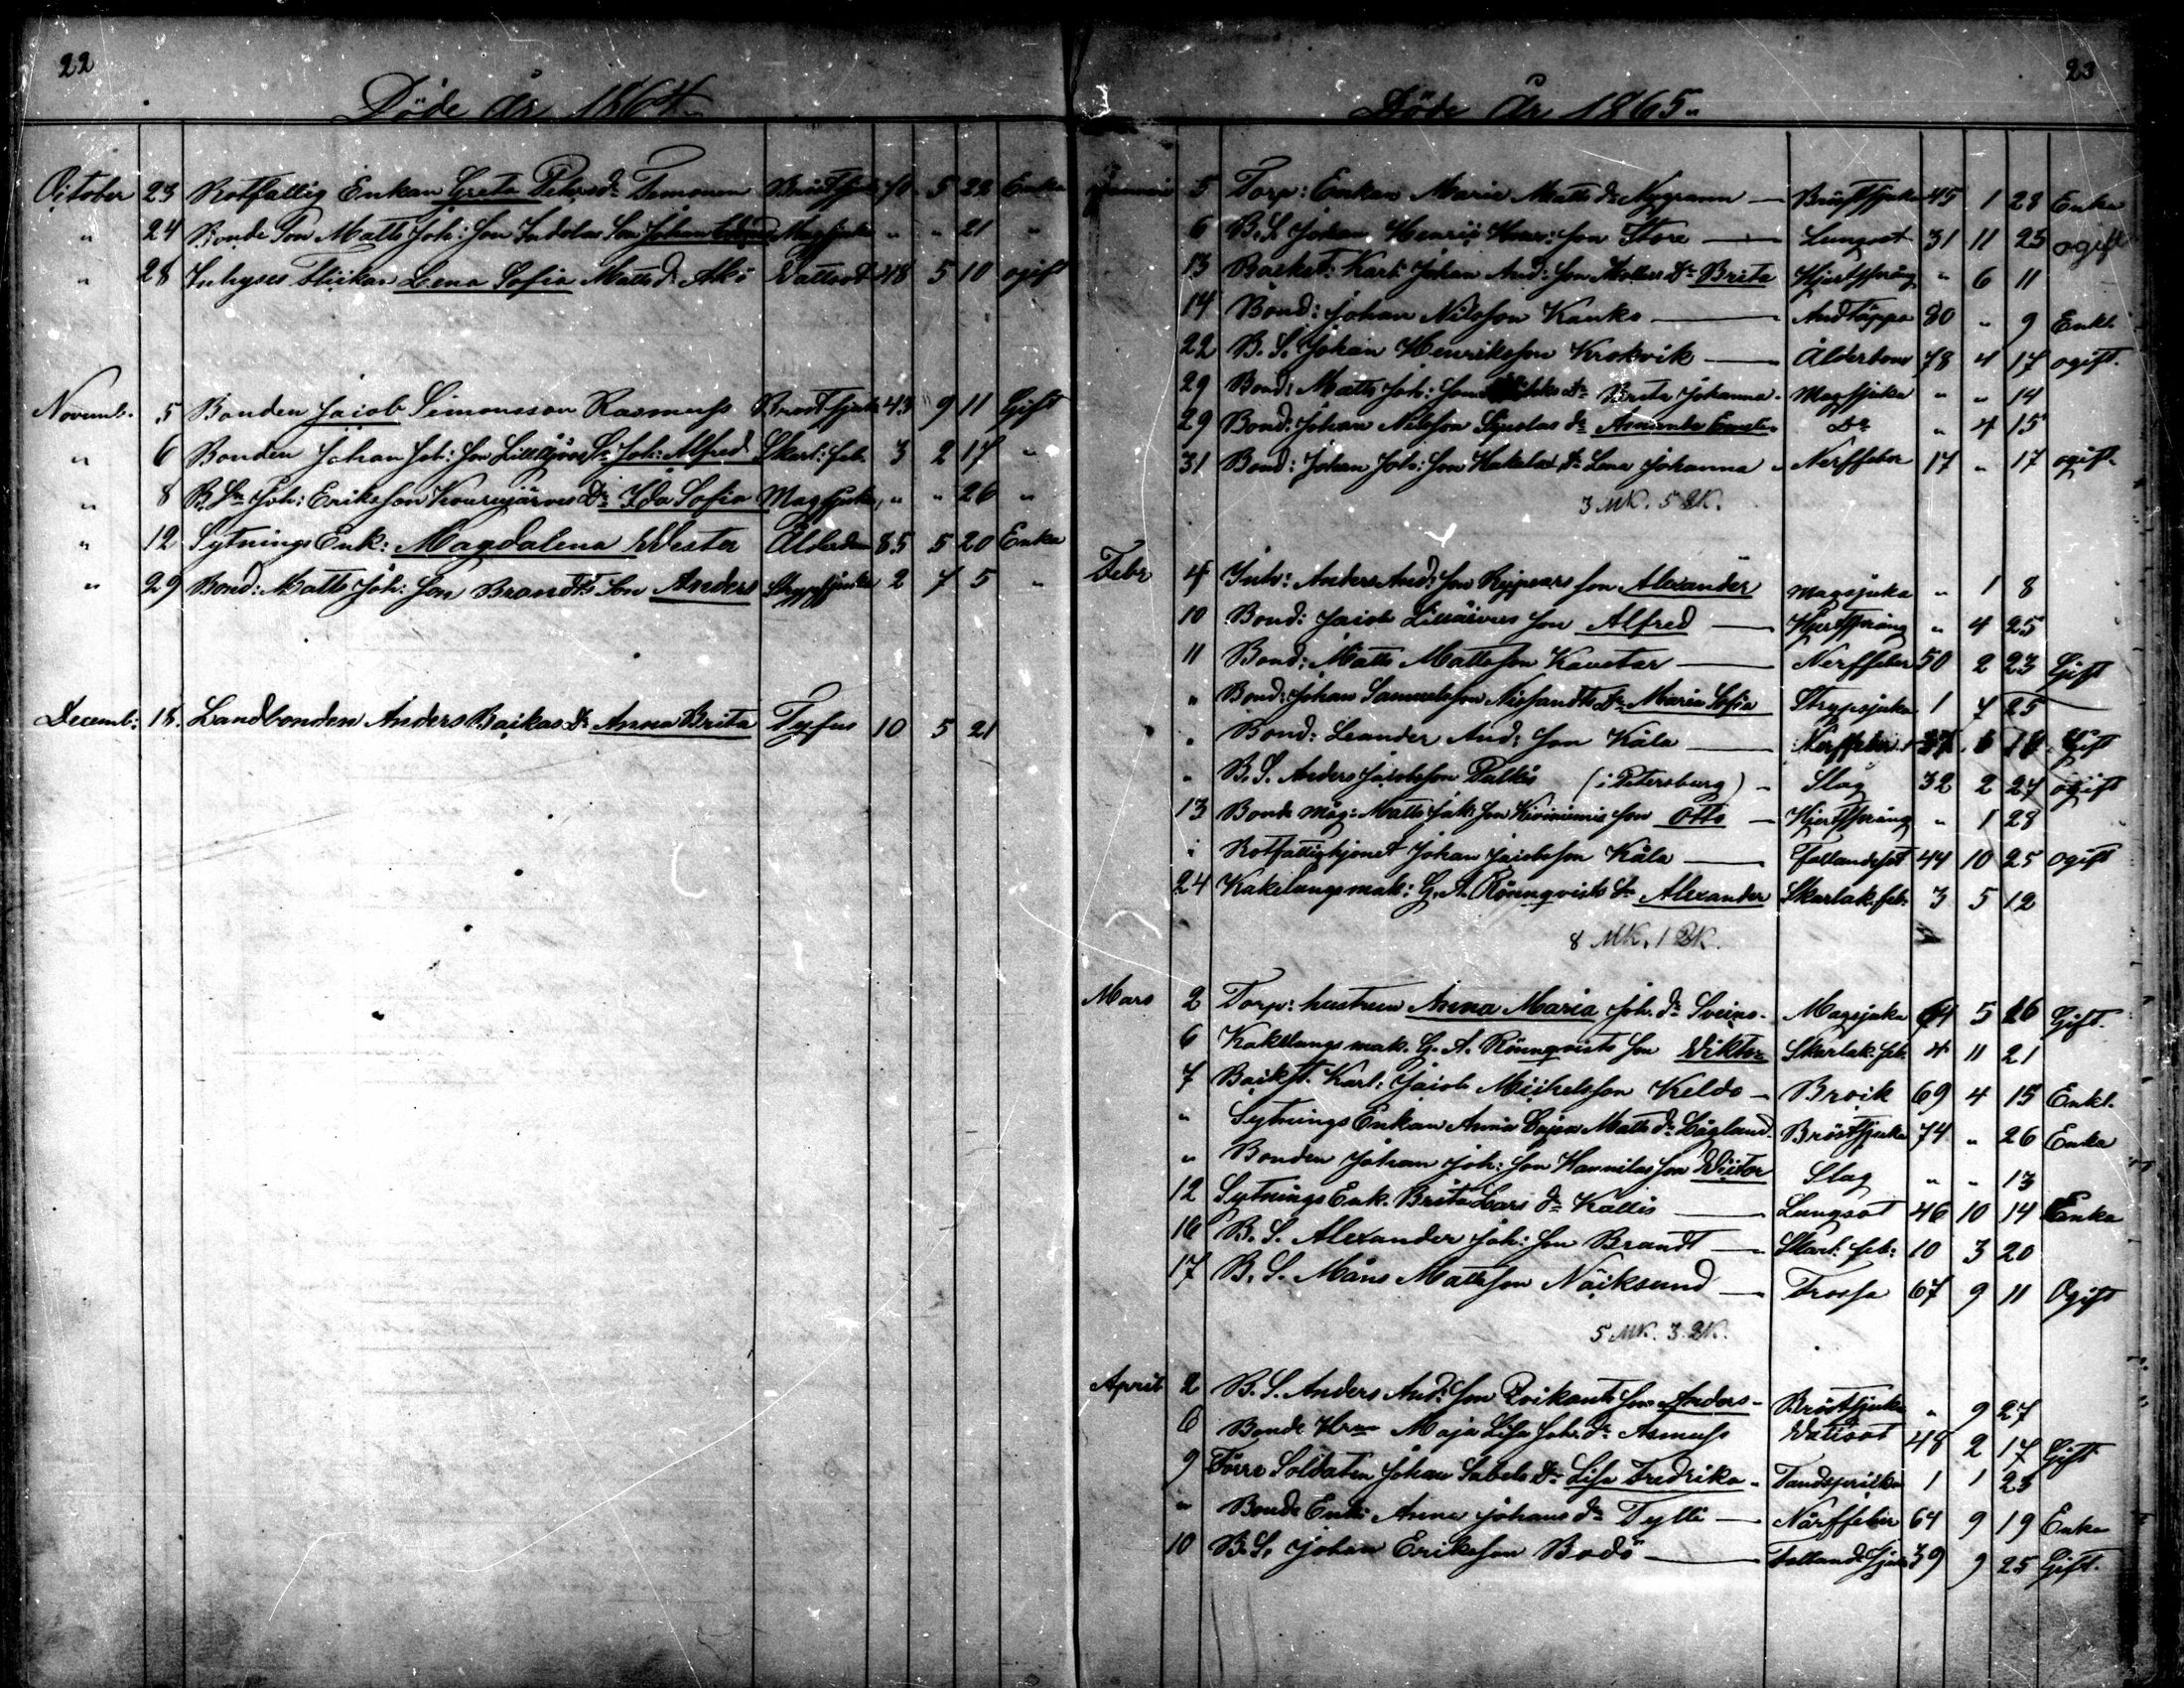 22
Döde År 1864
October 23 Rotfattig Enkan Greta Peters dr Timonen Bröstsjuk 71 5 22 Enka
" 24 Bonde Son Matts Joh: Son Indolas Son Johan Magsjuka " " 21 "
" 28 Inhyses Flickan Lena Sofia Matts dr Akö Vattsot 18 5 10 ogift
Novemb. 5 Bonden Jacob Simonsson Rasmuss Bröstsjuk 43 9 11 Gift
" 6 Bonden Johan Joh: Son Lilltjärvis Sn Joh: Alfred Skarl: feb. 3 2 17 "
" 8 B. Sn Joh: Eriksson Kourejärvis Dr Ida Sofia Magsjuka " " 26 "
" 12 Sytnings Enk: Magdalena Wester Ålderdom 85 5 20 Enka
" 29 Bond: Matts Joh: Son Brandts Son Anders Strypsjuka 2 7 5 "
Decemb: 18. Landbonden Anders Backas dr Anna Brita Tyfus 10 5 21
23
Döde År 1865
Januari 5 Torp: Enkan Maria Matts dr Nygrann Bröstsjuka 45 1 28 Enka
6 B. S. Johan Henric Henr: Son Store Lungsot 31 11 25 ogift
13 Backst: Karl: Johan And: Son Dr Brita Hjertsprång " 6 11
14 Bond: Johan Nilsson Kanko Andtäppa 80 " 9 Enkl.
22 B. S. Johan Henriksson Krokvik Ålderdom 78 4 17 ogift.
29 Bond: Matts Joh: Son dr Brita Johanna Magsjuka " " 14
29 Bond: Johan Nilsson dr Amanda Dr " 4 15
31 Bond: Johan Joh: Son Hakelax dr Lena Johanna Nerffeber 17 " 17 ogift
3 MK. 5 QK.
Febr 4 Inh: Anders And: Son Son Alexander Magsjuka " 1 8
10 Bond: Jacob Lillsärvis Son Alfred Hjertsprång " 4 25
11 Bond: Matts Mattsson Kavetar Nerffeber 50 2 23 Gift
" Bond: Johan Samuelsson Nissandts Dr Maria Sofia Strypsjuka 1 7 25
" Bond: Leander And: Son Käla Nerffeber 37 6 18 Gift
" B. S. Anders Jacobsson Palkis (i Petersburg) Slag 32 2 27 ogift
13 Bonde Måg: Matts Jak: Son Kiviniemis Son Otto Hjertsprång " 1 28
" Rotfattighjonet Johan Jacobsson Käla Fallandesot 44 10 25 ogift
24 Kakelungsmak: G. A. Rönnqvists Sn Alexander Skarlak. feb. 3 5 12
8 MK. 1 QK.
Mars 2 Torp: hustrun Anna Maria Joh. dr Sveins Magsjuka 64 5 26 Gift.
6 Kakelungs mak. G. A. Rönnqvists Son Viktor Skarlak. feb. 4 11 21
7 Backst. Karl: Jacob Michelsson Keldo Bråck 69 4 15 Enkl.
" Sytnings Enkan Anna Cajsa Matts dr Lågland Bröstsjuka 74 " 26 Enka
" Bonden Johan Joh: Son Hannilas Son Victor Slag " " 13
12 Sytnings Enk. Brita Lars dr Kallis Lungsot 46 10 14 Enka
16 B. S. Alexander Joh: Son Brandt Skarl: feb: 10 3 20
17 B. S. Måns Mattsson Näcksund Frossa 67 9 11 Ogift
5 MK. 3 QK.
April 2 B. S. Anders And: Son Qvikants Son Anders Bröstsjuka " 9 27
6 Bonde Hrun Maja Lisa Joh. dr Asmuss Vattsot 48 2 17 Gift
9 Förre Soldaten Johan Sabels Dr Lisa Fredrika Tandspricka 1 1 23
" Bonde Enk: Anna Johans dr Tylli Närffeber 64 9 19 Enka
10 B. S. Johan Eriksson Bodö Fallandesjuk 39 9 25 Gift.